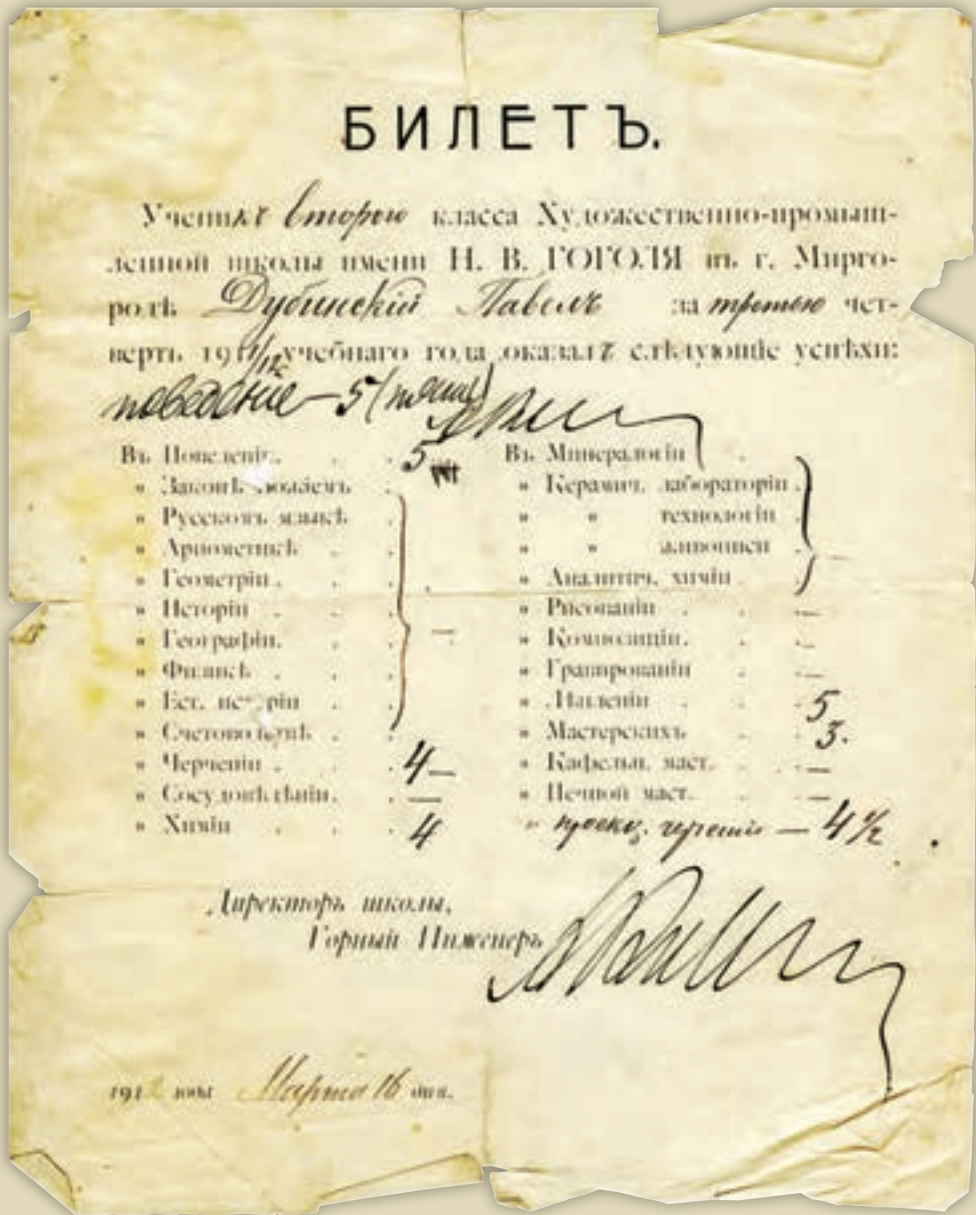 БИЛЕТЪ.
Ученикъ второго класса Художественно-промыш-
ленной школы имени Н. В. ГОГОЛЯ въ г. Мирго-
родѣ Дубинскій Павелъ за третью чет-
верть 1911/12 учебнаго года оказалъ слѣдующіе успѣхи:
поведение – 5 (пять)
Въ Поведеніи . . . 5
" Законѣ Божіемъ .
" Русскомъ языкѣ .
" Ариѳметикѣ . .
" Геометріи . . .
" Исторіи . . .
" Географіи . . . —
" Физикѣ . . .
" Ест. исторіи . .
" Счетоводствѣ . .
" Черченіи . . . 4 —
" Сосудовѣдѣніи . . —
" Химіи . . . 4
Въ Минералогіи .
" Керамич. лабораторіи .
" " технологіи .
" " живописи .
" Аналитич. химіи . —
" Рисованіи . . —
" Композиціи . . —
" Гравированіи . —
" Лѣпленіи . . 5
" Мастерскихъ . 3.
" Кафельн. маст. . —
" Печной маст. . —
" проекц. черченіи — 4 ½
Директоръ школы,
Горный Инженеръ
191 года Марта 16 дня.